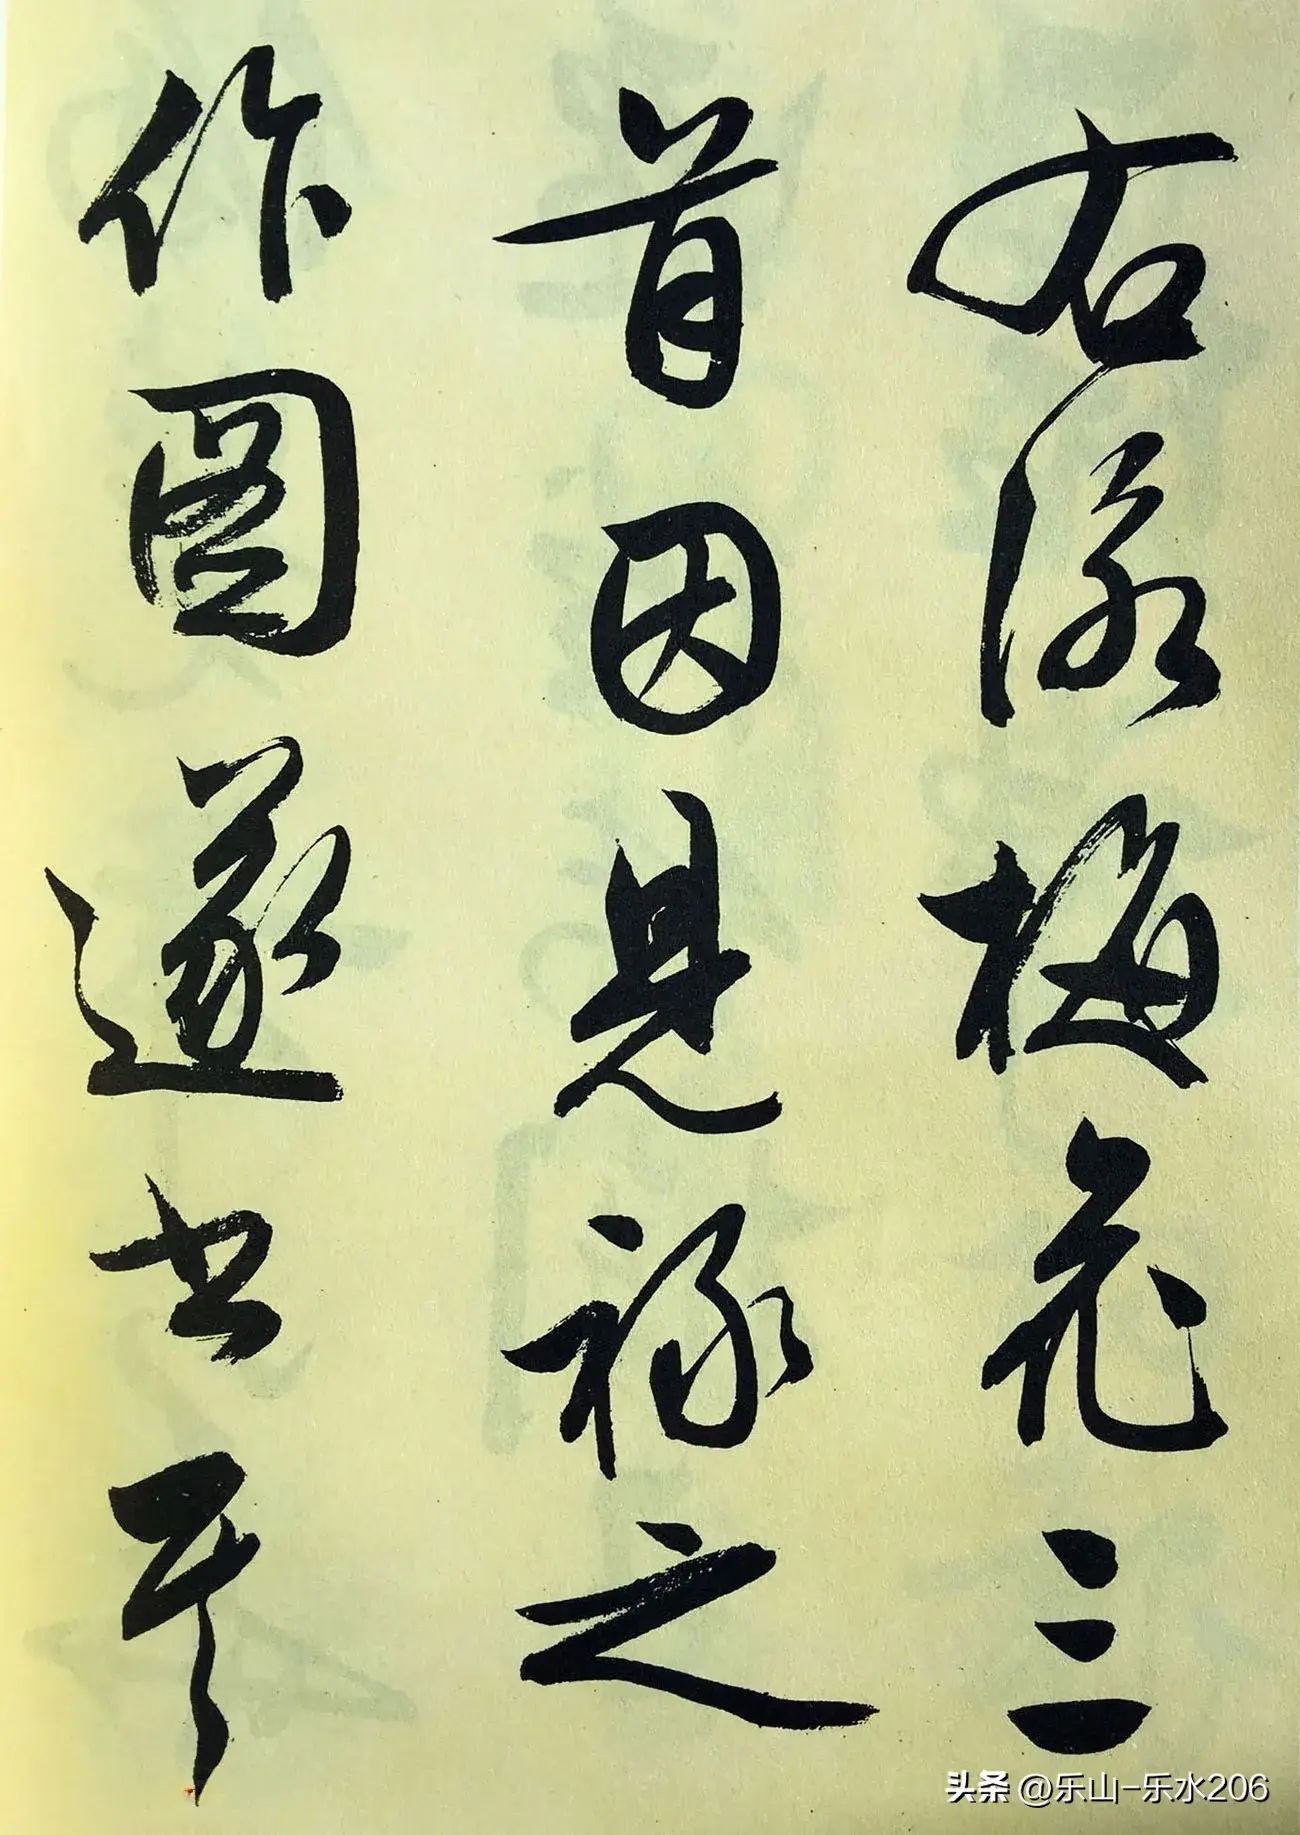 右詠梅花三
首因見祿之
作圖遂書
头条 @乐山-乐水206